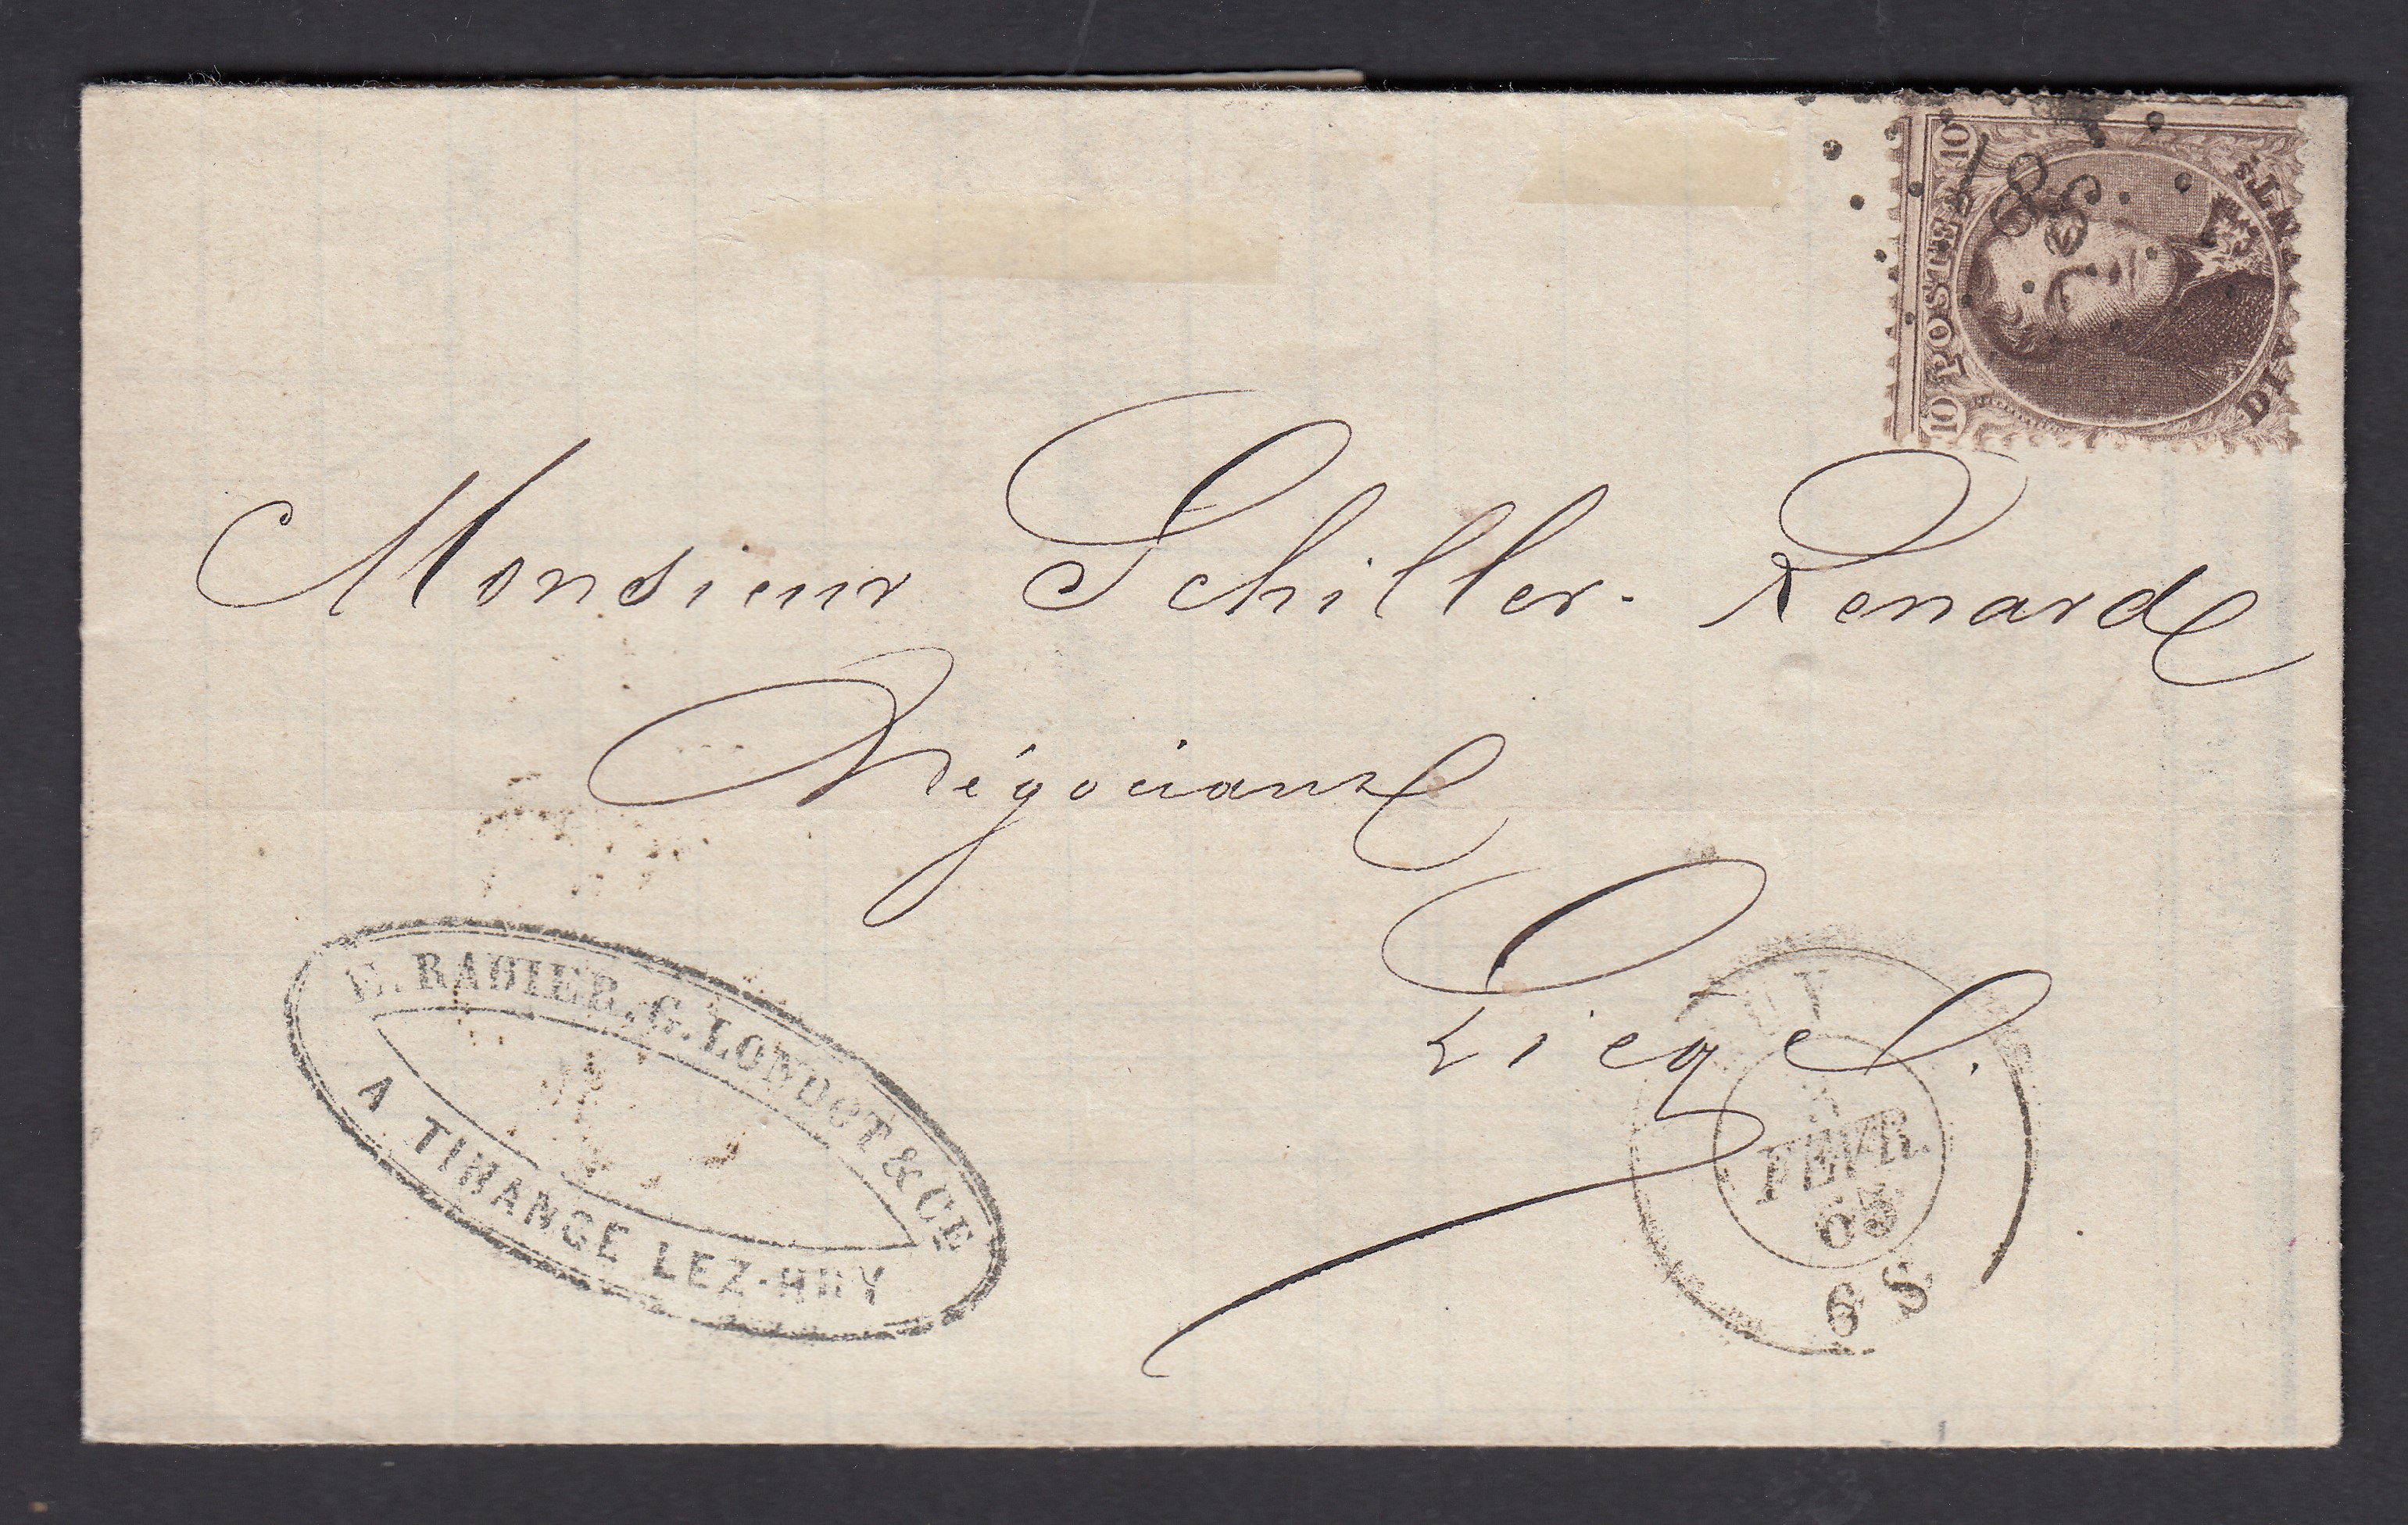 10 POSTES 10
DIX CENTS
186
Monsieur Schiller-Renard
Négociant
Liége.
E. RADIER, G. LONDOT & CE
A TIHANGE LEZ-HUY
HUY
FEVR.
65
6 S